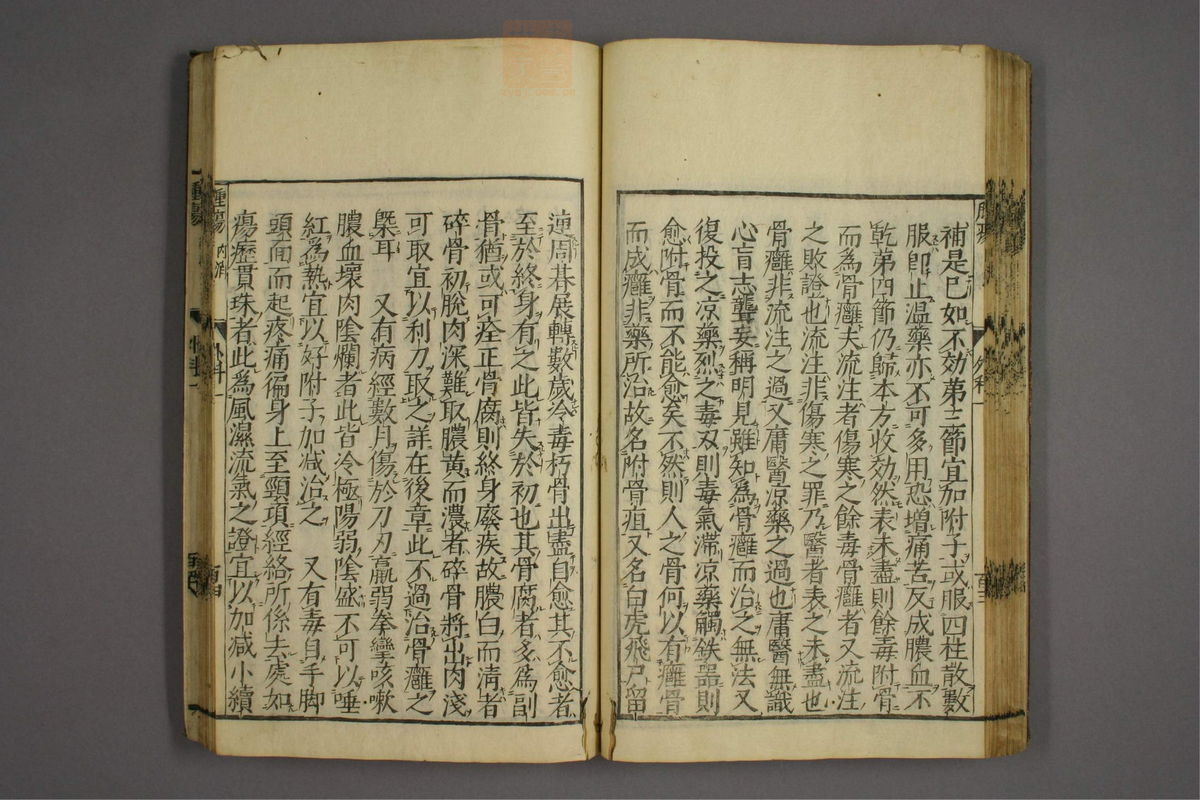 補是已如不効第三節宜加附子或服四牲散數
服即止温藥亦不可多用恐増痛苦反成膿血不
乾第四節仍歸本方收効然表未盡則餘毒附骨
而為骨癰夫流注者傷寒之餘毒骨癰者又流注
之敗證也流注非傷寒之罪乃醫者表之未盡也
骨癰非流注之過又庸醫凉藥之過也庸醫無識
心盲志聾妄稱明見雖知為骨癰而治之無法又
復投之凉藥烈之毒刄則毒氣滞凉藥觸鉄器則
愈附骨而不能愈矣不然則人之骨何以有癰骨
而成癰非藥所治故名附骨疽又名白虎飛尸留
連周朞展轉數歲冷毒朽骨出盡自愈其不愈者
至於終身有之此皆失於初也其骨腐者多為副
骨猶或可痊正骨腐則終身廢疾故膿白而清者
碎骨初脫肉深難取膿黄而濃者碎骨將出肉淺
可取宜以利刀取之詳在後章此不過治骨癰之
槩耳　又有病經數月傷於刀刃羸弱拳攣咳嗽
膿血壞肉陰爛者此皆冷極陽弱陰盛不可以唾
紅為熱宜以好附子加减治之　又有毒自手脚
頭面而起疼痛徧身上至頸項經絡所係去處如
瘍瘰貫珠者此為風濕流氣之證宜以加减小續
腫瘍
内消
外科一
外科一